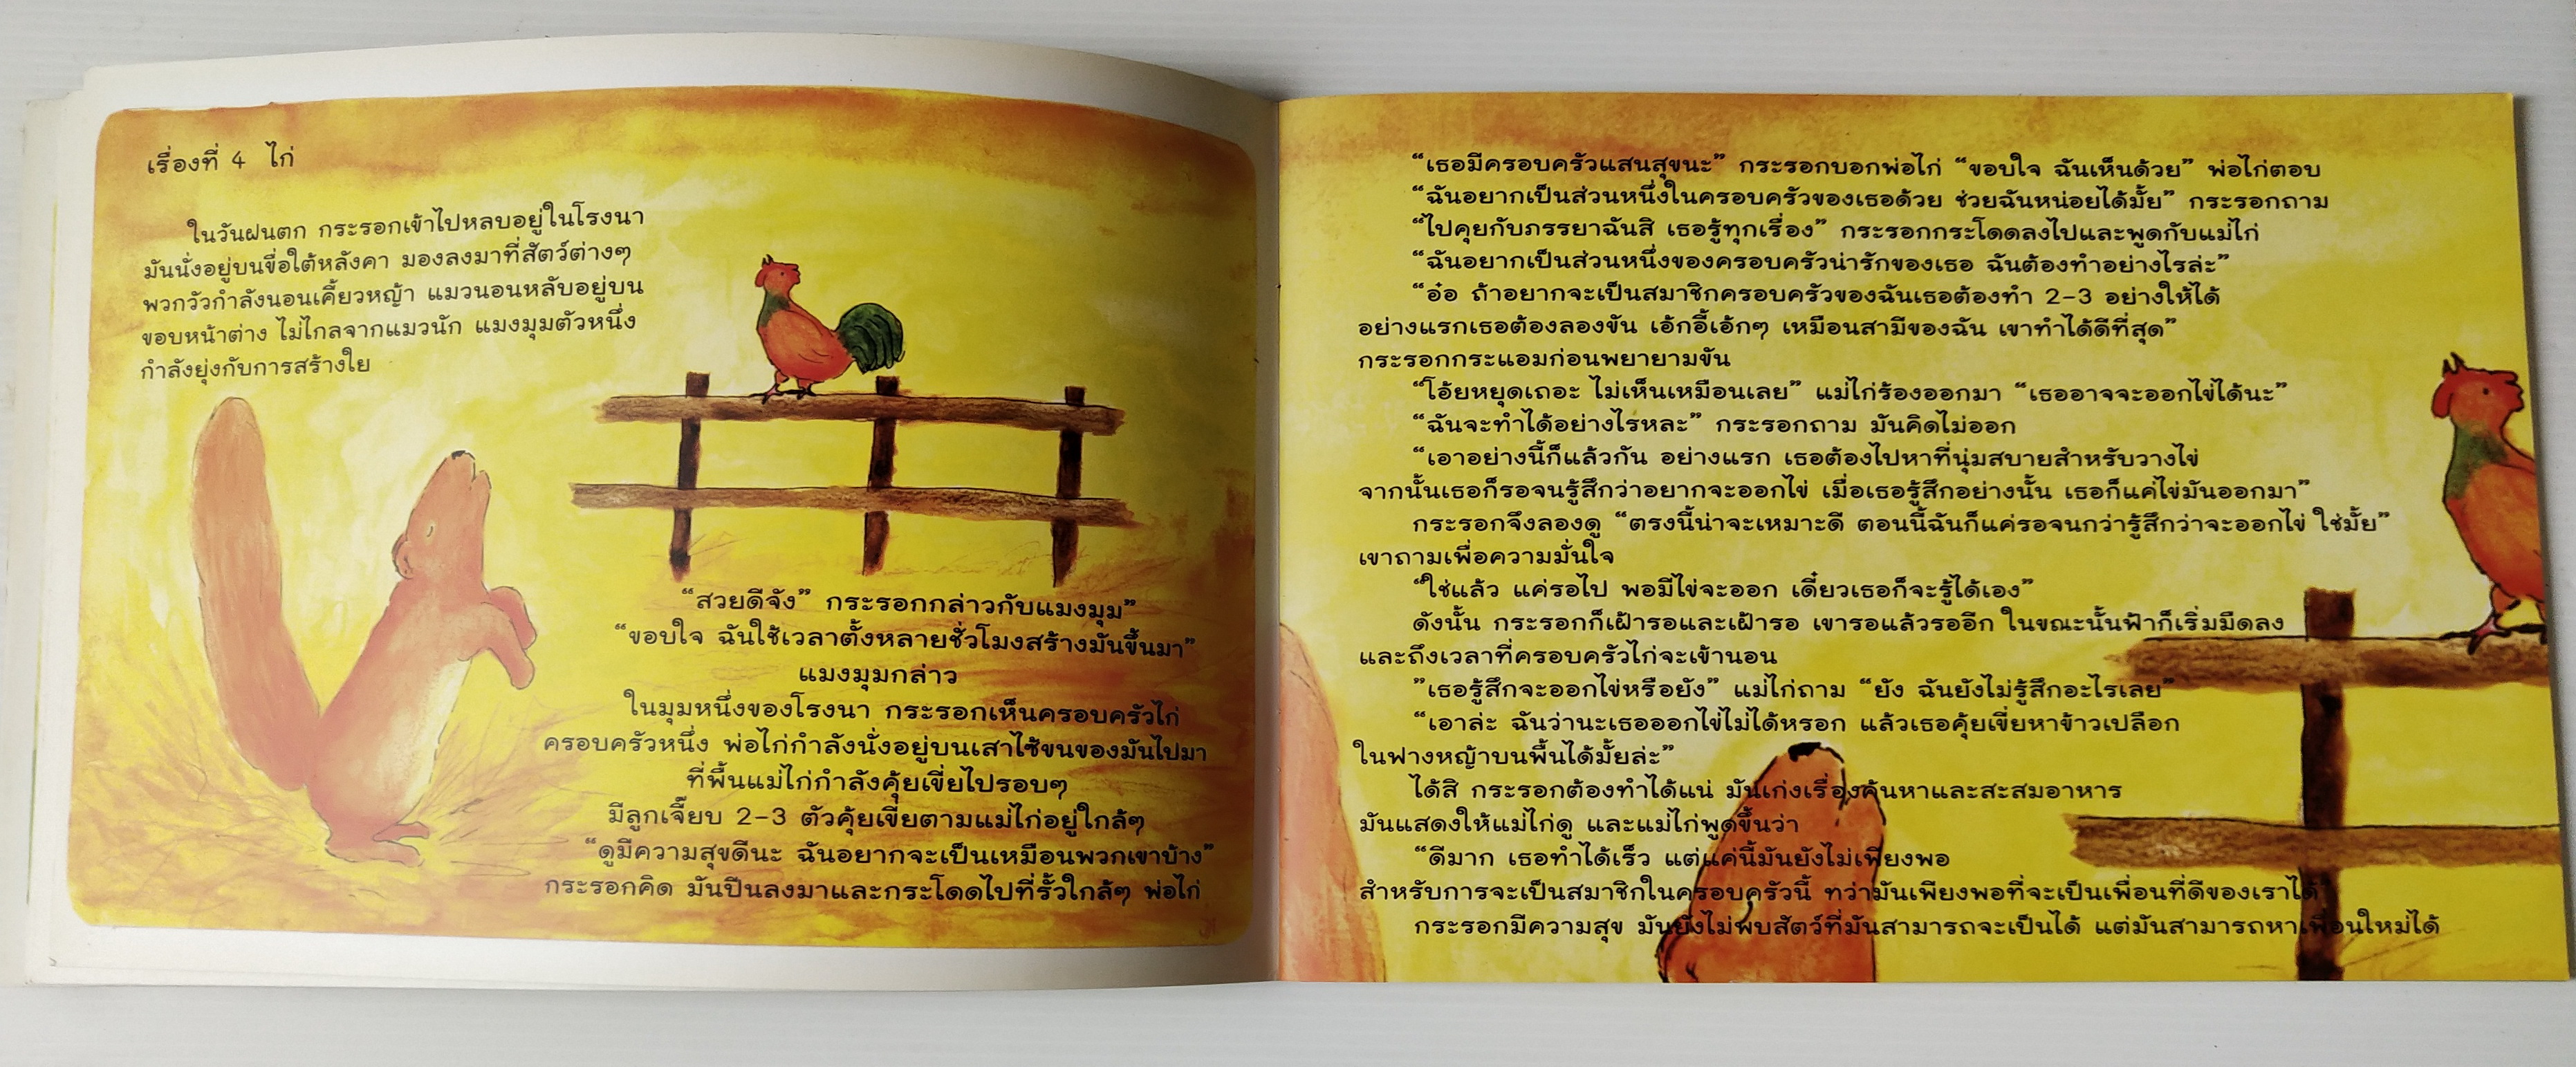 เรื่องที่ 4  ไก่
ในวันฝนตก กระรอกเข้าไปหลบอยู่ในโรงนา
มันนั่งอยู่บนขื่อใต้หลังคา มองลงมาที่สัตว์ต่างๆ
พวกวัวกำลังนอนเคี้ยวหญ้า แมวนอนหลับอยู่บน
ขอบหน้าต่าง ไม่ไกลจากแมวนัก แมงมุมตัวหนึ่ง
กำลังยุ่งกับการสร้างใย
“สวยดีจัง” กระรอกกล่าวกับแมงมุม”
“ขอบใจ ฉันใช้เวลาตั้งหลายชั่วโมงสร้างมันขึ้นมา”
แมงมุมกล่าว
ในมุมหนึ่งของโรงนา กระรอกเห็นครอบครัวไก่
ครอบครัวหนึ่ง พ่อไก่กำลังนั่งอยู่บนเสาไซ้ขนของมันไปมา
ที่พื้นแม่ไก่กำลังคุ้ยเขี่ยไปรอบๆ
มีลูกเจี๊ยบ 2-3 ตัวคุ้ยเขี่ยตามแม่ไก่อยู่ใกล้ๆ
“ดูมีความสุขดีนะ ฉันอยากจะเป็นเหมือนพวกเขาบ้าง”
กระรอกคิด มันปีนลงมาและกระโดดไปที่รั้วใกล้ๆ พ่อไก่
“เธอมีครอบครัวแสนสุขนะ” กระรอกบอกพ่อไก่ “ขอบใจ ฉันเห็นด้วย” พ่อไก่ตอบ
“ฉันอยากเป็นส่วนหนึ่งในครอบครัวของเธอด้วย ช่วยฉันหน่อยได้มั้ย” กระรอกถาม
“ไปคุยกับภรรยาฉันสิ เธอรู้ทุกเรื่อง” กระรอกกระโดดลงไปและพูดกับแม่ไก่
“ฉันอยากเป็นส่วนหนึ่งของครอบครัวน่ารักของเธอ ฉันต้องทำอย่างไรล่ะ”
“อ๋อ ถ้าอยากจะเป็นสมาชิกครอบครัวของฉันเธอต้องทำ 2-3 อย่างให้ได้
อย่างแรกเธอต้องลองขัน เอ้กอี้เอ้กๆ เหมือนสามีของฉัน เขาทำได้ดีที่สุด”
กระรอกกระแอมก่อนพยายามขัน
“โอ้ยหยุดเถอะ ไม่เห็นเหมือนเลย” แม่ไก่ร้องออกมา “เธออาจจะออกไข่ได้นะ”
“ฉันจะทำได้อย่างไรหละ” กระรอกถาม มันคิดไม่ออก
“เอาอย่างนี้ก็แล้วกัน อย่างแรก เธอต้องไปหาที่นุ่มสบายสำหรับวางไข่
จากนั้นเธอก็รอจนรู้สึกว่าอยากจะออกไข่ เมื่อเธอรู้สึกอย่างนั้น เธอก็แค่ไข่มันออกมา”
กระรอกจึงลองดู “ตรงนี้น่าจะเหมาะดี ตอนนี้ฉันก็แค่รอจนกว่ารู้สึกว่าจะออกไข่ ใช่มั้ย”
เขาถามเพื่อความมั่นใจ
“ใช่แล้ว แค่รอไป พอมีไข่จะออก เดี๋ยวเธอก็จะรู้ได้เอง”
ดังนั้น กระรอกก็เฝ้ารอและเฝ้ารอ เขารอแล้วรออีก ในขณะนั้นฟ้าก็เริ่มมืดลง
และถึงเวลาที่ครอบครัวไก่จะเข้านอน
”เธอรู้สึกจะออกไข่หรือยัง” แม่ไก่ถาม “ยัง ฉันยังไม่รู้สึกอะไรเลย”
“เอาล่ะ ฉันว่านะเธอออกไข่ไม่ได้หรอก แล้วเธอคุ้ยเขี่ยหาข้าวเปลือก
ในฟางหญ้าบนพื้นได้มั้ยล่ะ”
ได้สิ กระรอกต้องทำได้แน่ มันเก่งเรื่องค้นหาและสะสมอาหาร
มันแสดงให้แม่ไก่ดู และแม่ไก่พูดขึ้นว่า
“ดีมาก เธอทำได้เร็ว แต่แค่นี้มันยังไม่เพียงพอ
สำหรับการจะเป็นสมาชิกในครอบครัวนี้ ทว่ามันเพียงพอที่จะเป็นเพื่อนที่ดีของเราได้”
กระรอกมีความสุข มันยังไม่พบสัตว์ที่มันสามารถจะเป็นได้ แต่มันสามารถหาเพื่อนใหม่ได้